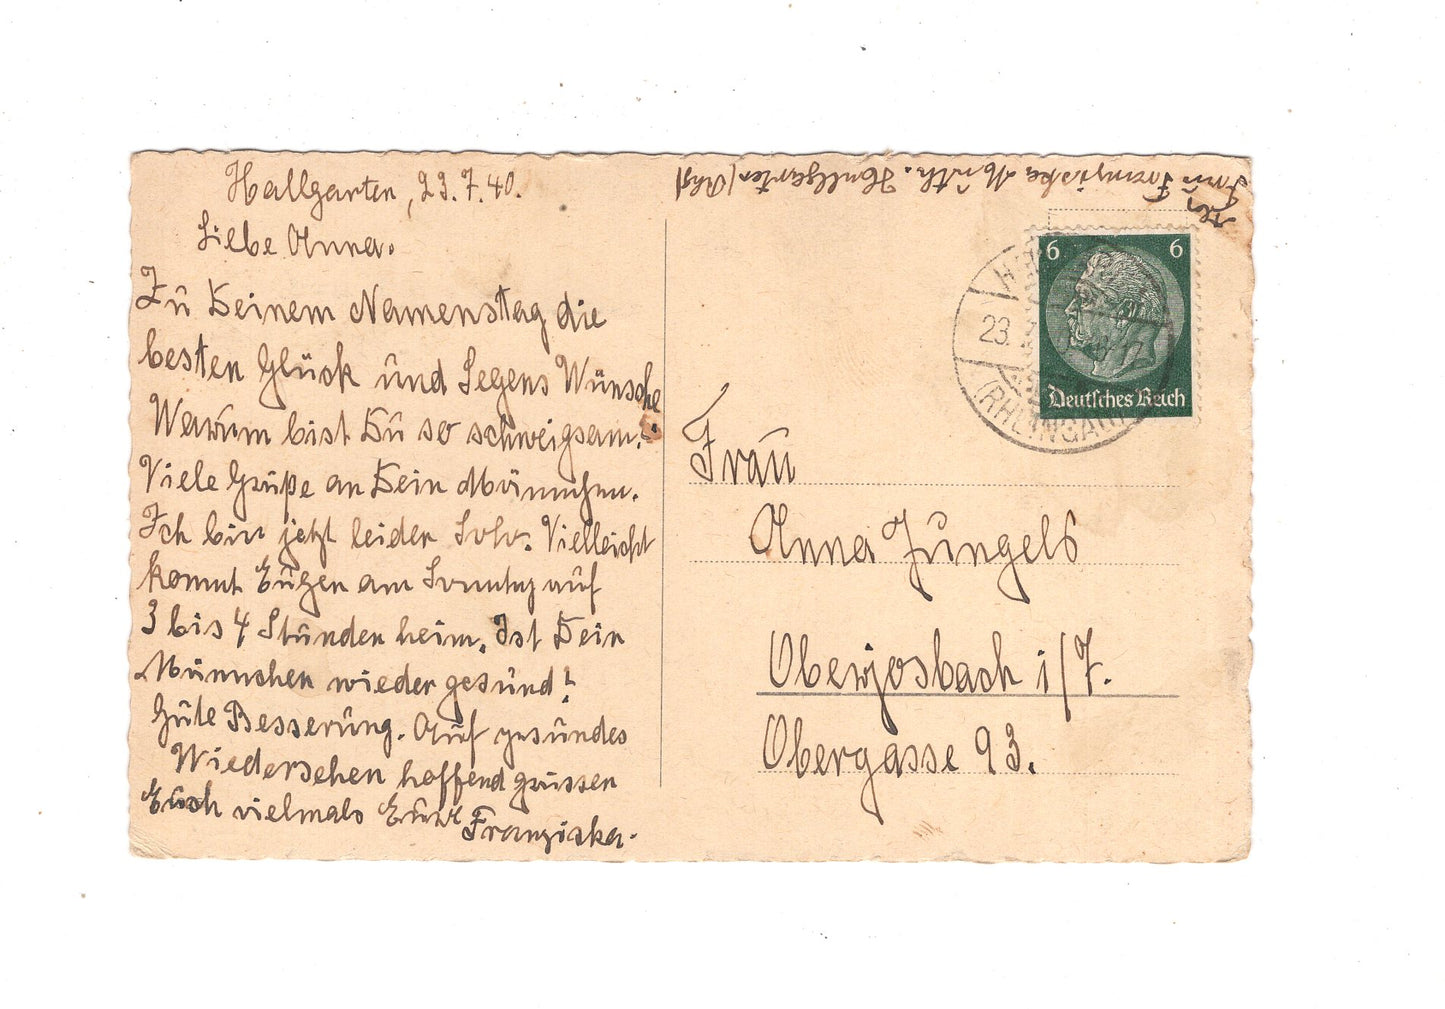 Hallgarten, 23.7.40.
Liebe Anna.
Zu Deinem Namenstag die
besten Glück und Segens Wünsche
Warum bist Du so schweigsam?
Viele Grüße an Dein Männchen.
Ich bin jetzt leider Solo. Vielleicht
kommt Eugen am Sonntag auf
3 bis 4 Stunden heim. Ist Dein
Männchen wieder gesund?
Gute Besserung. Auf gesundes
Wiedersehen hoffend grüssen
Euch vielmals Eure
Franziska.
Frau Franziska Hallgarten/Rhg
6 6
Deutsches Reich
23.
(RHEINGAU)
Frau
Anna Jungels
Oberjosbach i/T.
Obergasse 93.